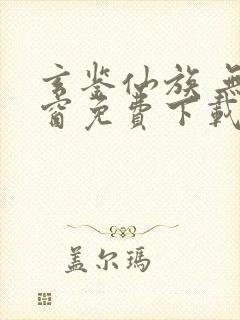 玄鉴仙族 無
窗免費下載
盖尔玛